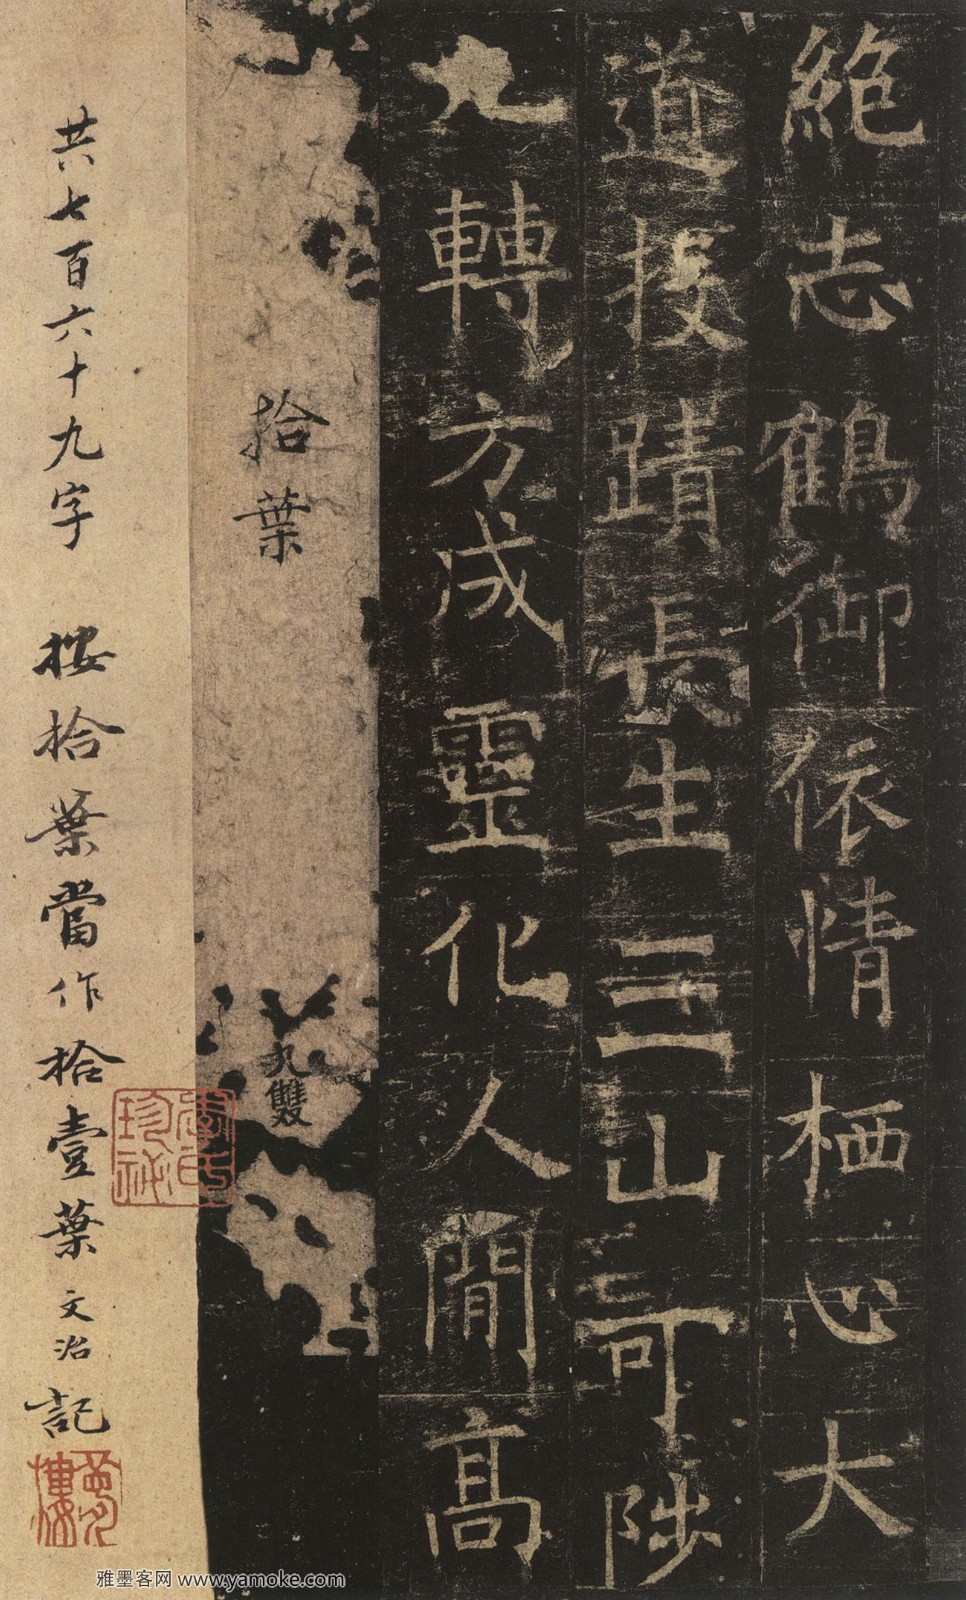 絶志鶴御依情栖心大
道投蹟長生三山可陟
九轉方成靈化人間高
拾葉
九雙
共七百六十九字 按拾葉當作拾壹葉文治記
李氏珍祕
夢樓
雅墨客网 www.yamoke.com